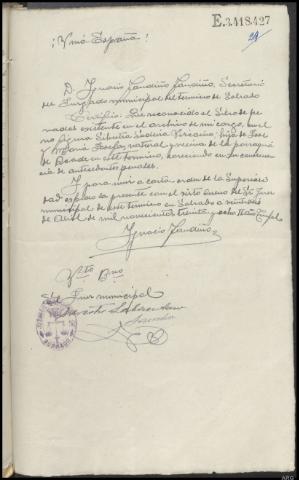 E.3.418.427
¡Viva España!
D. Ignacio Fandiño Fandiño, Secretario
del Juzgado municipal del termino de
Certifico: Que reconocido el libro de pe-
nados existente en el archivo de mi cargo, en el
no figura hija de José
y María Josefa, natural y vecina de la parroquia
de en este termino, careciendo en su consecuen-
cia de antecedentes penales.
Y para unir a carta-orden de la Superiori-
dad expido la presente con el visto bueno del Sr. Juez
municipal de este termino en a
de Abril de mil novecientos treinta y ocho. II Año Triunfal
Ignacio Fandiño
Vto. Bno.
El Juez municipal
ARG